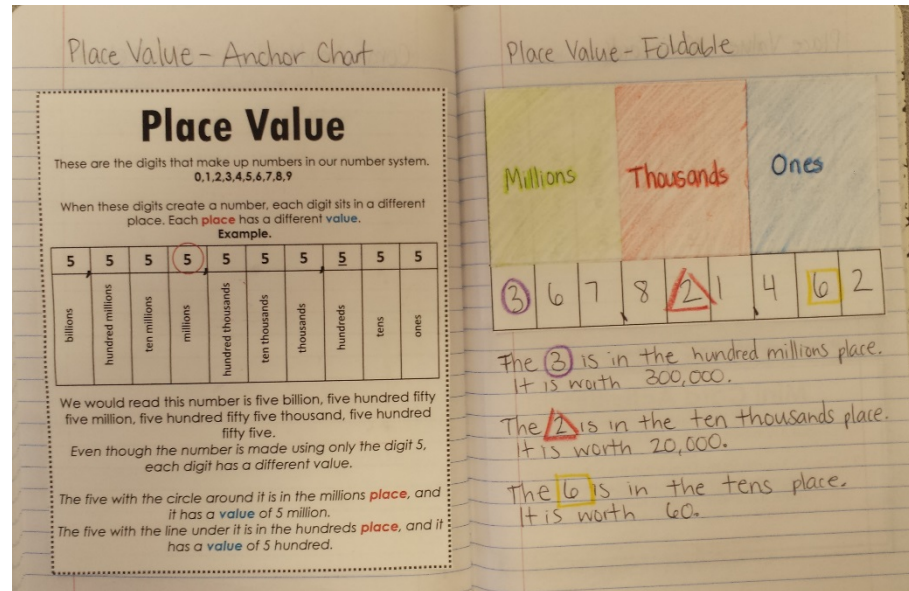 Place Value - Anchor Chart
Place Value
These are the digits that make up numbers in our number system.
0,1,2,3,4,5,6,7,8,9
When these digits create a number, each digit sits in a different
place. Each place has a different value.
Example.
5, 5 5 5, 5 5 5, 5 5 5
billions
hundred millions
ten millions
millions
hundred thousands
ten thousands
thousands
hundreds
tens
ones
We would read this number is five billion, five hundred fifty
five million, five hundred fifty five thousand, five hundred
fifty five.
Even though the number is made using only the digit 5,
each digit has a different value.
The five with the circle around it is in the millions place, and
it has a value of 5 million.
The five with the line under it is in the hundreds place, and it
has a value of 5 hundred.
Place Value - Foldable
Millions
Thousands
Ones
3 6 7, 8 2 1, 4 6 2
The 3 is in the hundred millions place.
It is worth 300,000.
The 2 is in the ten thousands place.
It is worth 20,000.
The 6 is in the tens place.
It is worth 60.